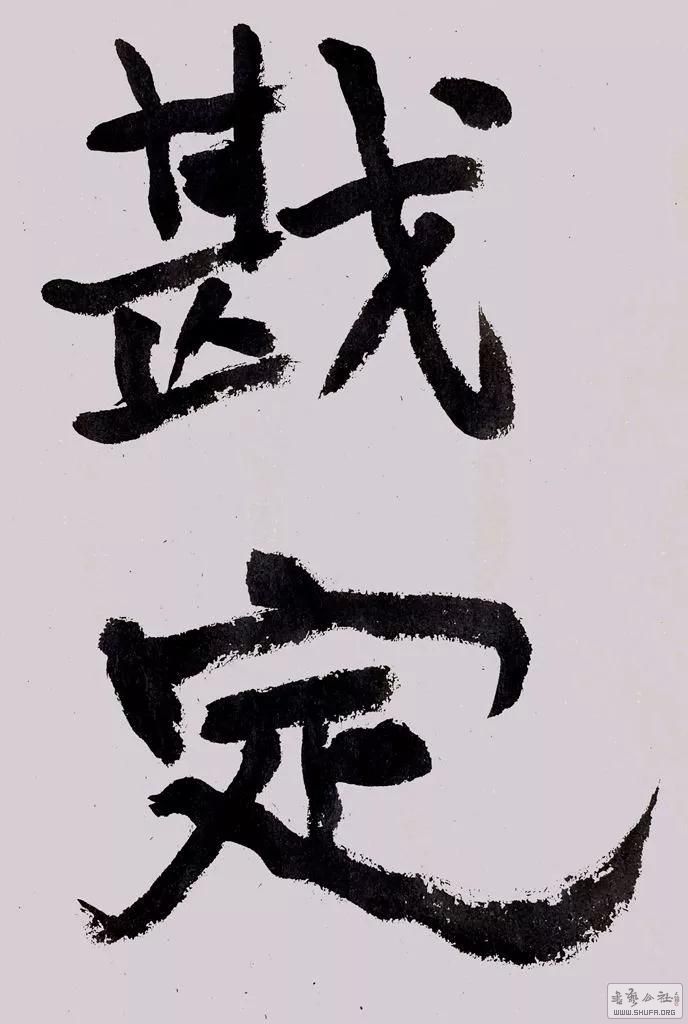 戡
定
书艺公社
WWW.SHUFA.ORG